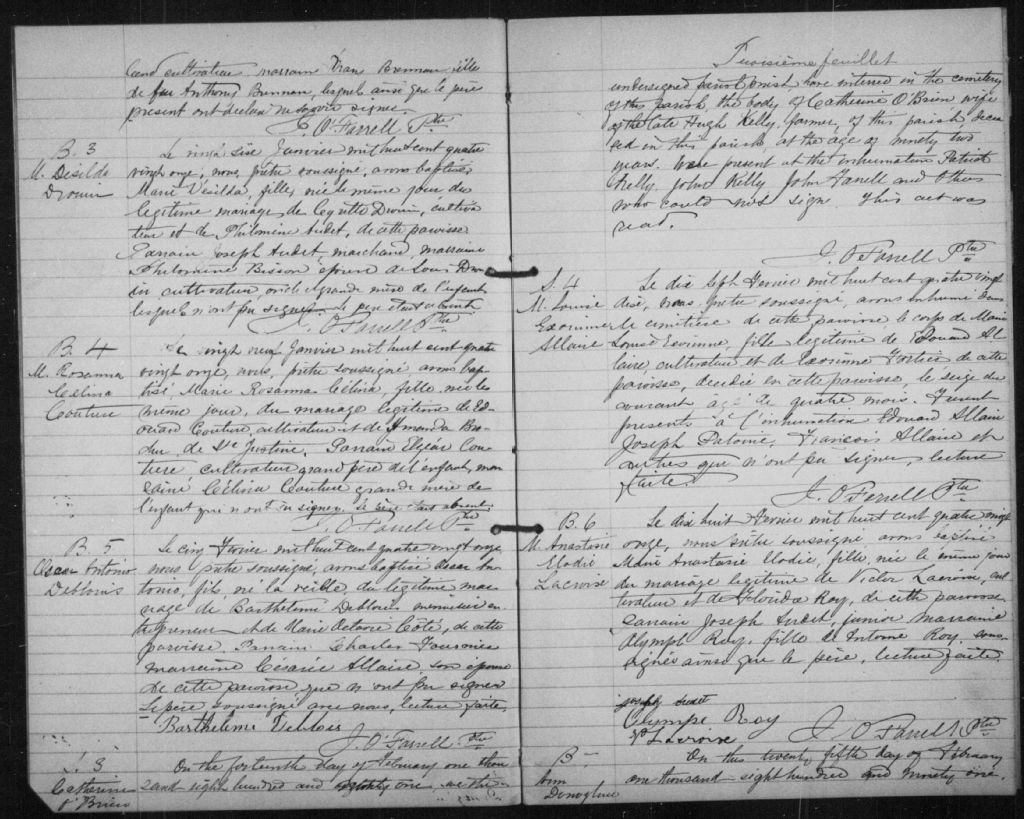 land cultivateur marraine Mary Brennan fille
de feu Anthony Brennan, lesquels ainsi que le père
présent ont déclaré ne savoir signer.
J. O'Farrell Ptre
B. 3
M. Desilda
Drouin
Le vingt six Janvier mil huit cent quatre
vingt onze, nous, prêtre soussigné, avons baptisé
Marie Désilda, fille, née le même jour du
légitime mariage de Drouin, cultiva
teur et de Philomène Audet, de cette paroisse
Parrain Joseph Audet, marchand, marraine
Philomène Bisson épouse de Louis Drou
in cultivateur, grande mère de l'enfant
lesquels n'ont pu signer le père étant absent
J. O'Farrell Ptre
B. 4
M. Rosanna
Célina
Couture
Le vingt neuf Janvier mil huit cent quatre
vingt onze, nous, prêtre soussigné avons bap
tisé, Marie Rosanna Célina, fille née le
même jour, du mariage légitime de Ed
ouard Couture, cultivateur et de Amanda
de Ste Justine, Parrain Elzéar Cou
ture cultivateur grand père de l'enfant, mar
raine Célina Couture grande mère de
l'enfant que n'ont su signer, le père étant absent.
J. O'Farrell Ptre
B. 5
Oscar Antonio
Deblois
Le cinq Fevrier mil huit cent quatre vingt onze,
nous prêtre soussigné, avons baptisé Oscar An
tonio, fils, né la veille, du légitime ma
riage de Barthelemi Deblois menuisier en
trepreneur et de Marie Delavoie Côté, de cette
paroisse. Parrain Charles Fournier
marraine Césarée Allaire son épouse
de cette paroisse que n'ont pu signer
Le père soussigné avec nous, lecture faite.
Barthelemi Deblois
J. O'Farrell Ptre
S. 3
Catherine
O'Brien
On the forteenth day of February one thou
sand eight hundred and ninety one we the
Troisième feuillet
undersigned parish Priest have interred in the cemetery
of this parish the body of Catherine O'Brien wife
of the late Hugh Kelly, farmer, of this parish, decea
sed in this parish at the age of ninety two
years. Were present at the inhumation Patrick
Kelly, John Kelly John Farrell and others
who could not sign. This act was
read.
J. O'Farrell Ptre
S. 4
M. Louise
Allaire
Le dix sept Fevrier mil huit cent quatre vingt
onze, nous, prêtre soussigné, avons inhumé dans
le cimitière de cette paroisse le corps de Marie
Louise fille légitime de Edouard Al
laire, cultivateur et de Fortier de cette
paroisse, decedée en cette paroisse, le seize du
courant agé de quatre mois. Furent
presents à l'inhumation Edouard Allaire
Joseph François Allaire et
autres que n'ont pu signer, lecture
faite.
J. O'Farrell Ptre
B. 6
M. Anastasie
Elodie
Lacroix
Le dix huit Fevrier mil huit cent quatre vingt
onze, nous prêtre soussigné avons baptisé
Marie Anastasie Elodie, fille, née le même jour
du mariage légitime de Victor Lacroix, cul
tivateur et de Florida Roy, de cette paroisse
Parrain Joseph Audet, junior, marraine
Olympe Roy, fille de Antoine Roy, sous
signés ainsi que le père, lecture faite.
Joseph Audet
Olympe Roy
V. Lacroix
J. O'Farrell Ptre
B
Ann
Donoghue
On this twenty fifth day of February
one thousand eight hundred and ninety one